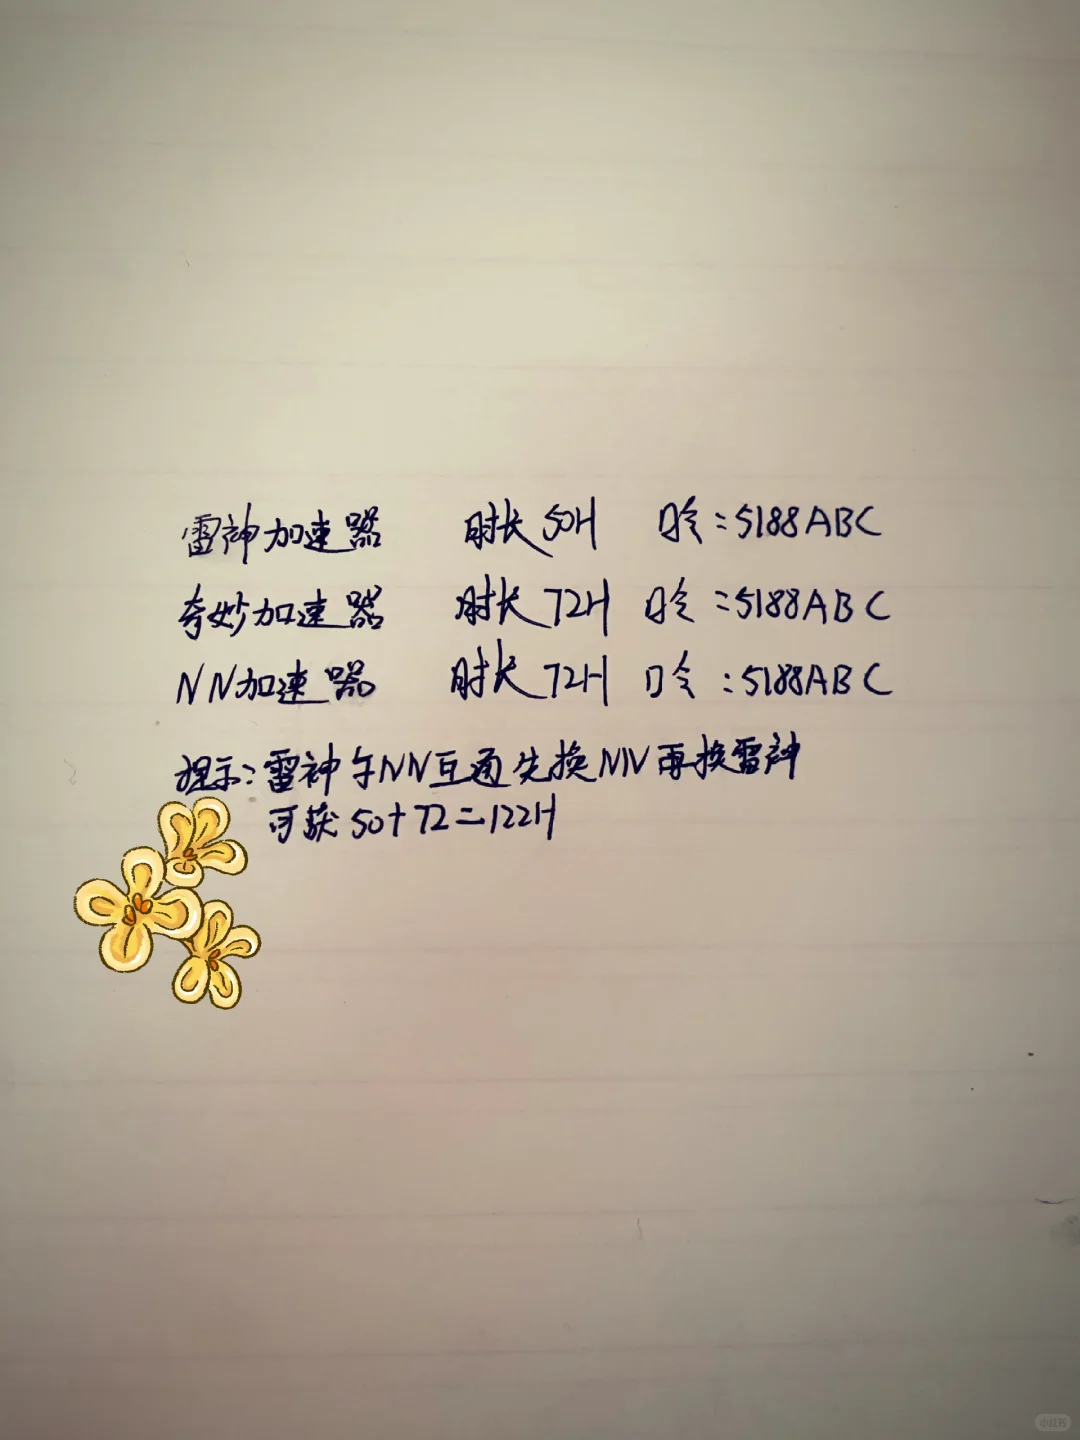 雷神加速器 时长50H 口令:5188ABC
夸妙加速器 时长72H 口令:5188ABC
NN加速器 时长72H 口令:5188ABC
提示:雷神与NN互通先换NN再换雷神
可获50+72=122H
小红书